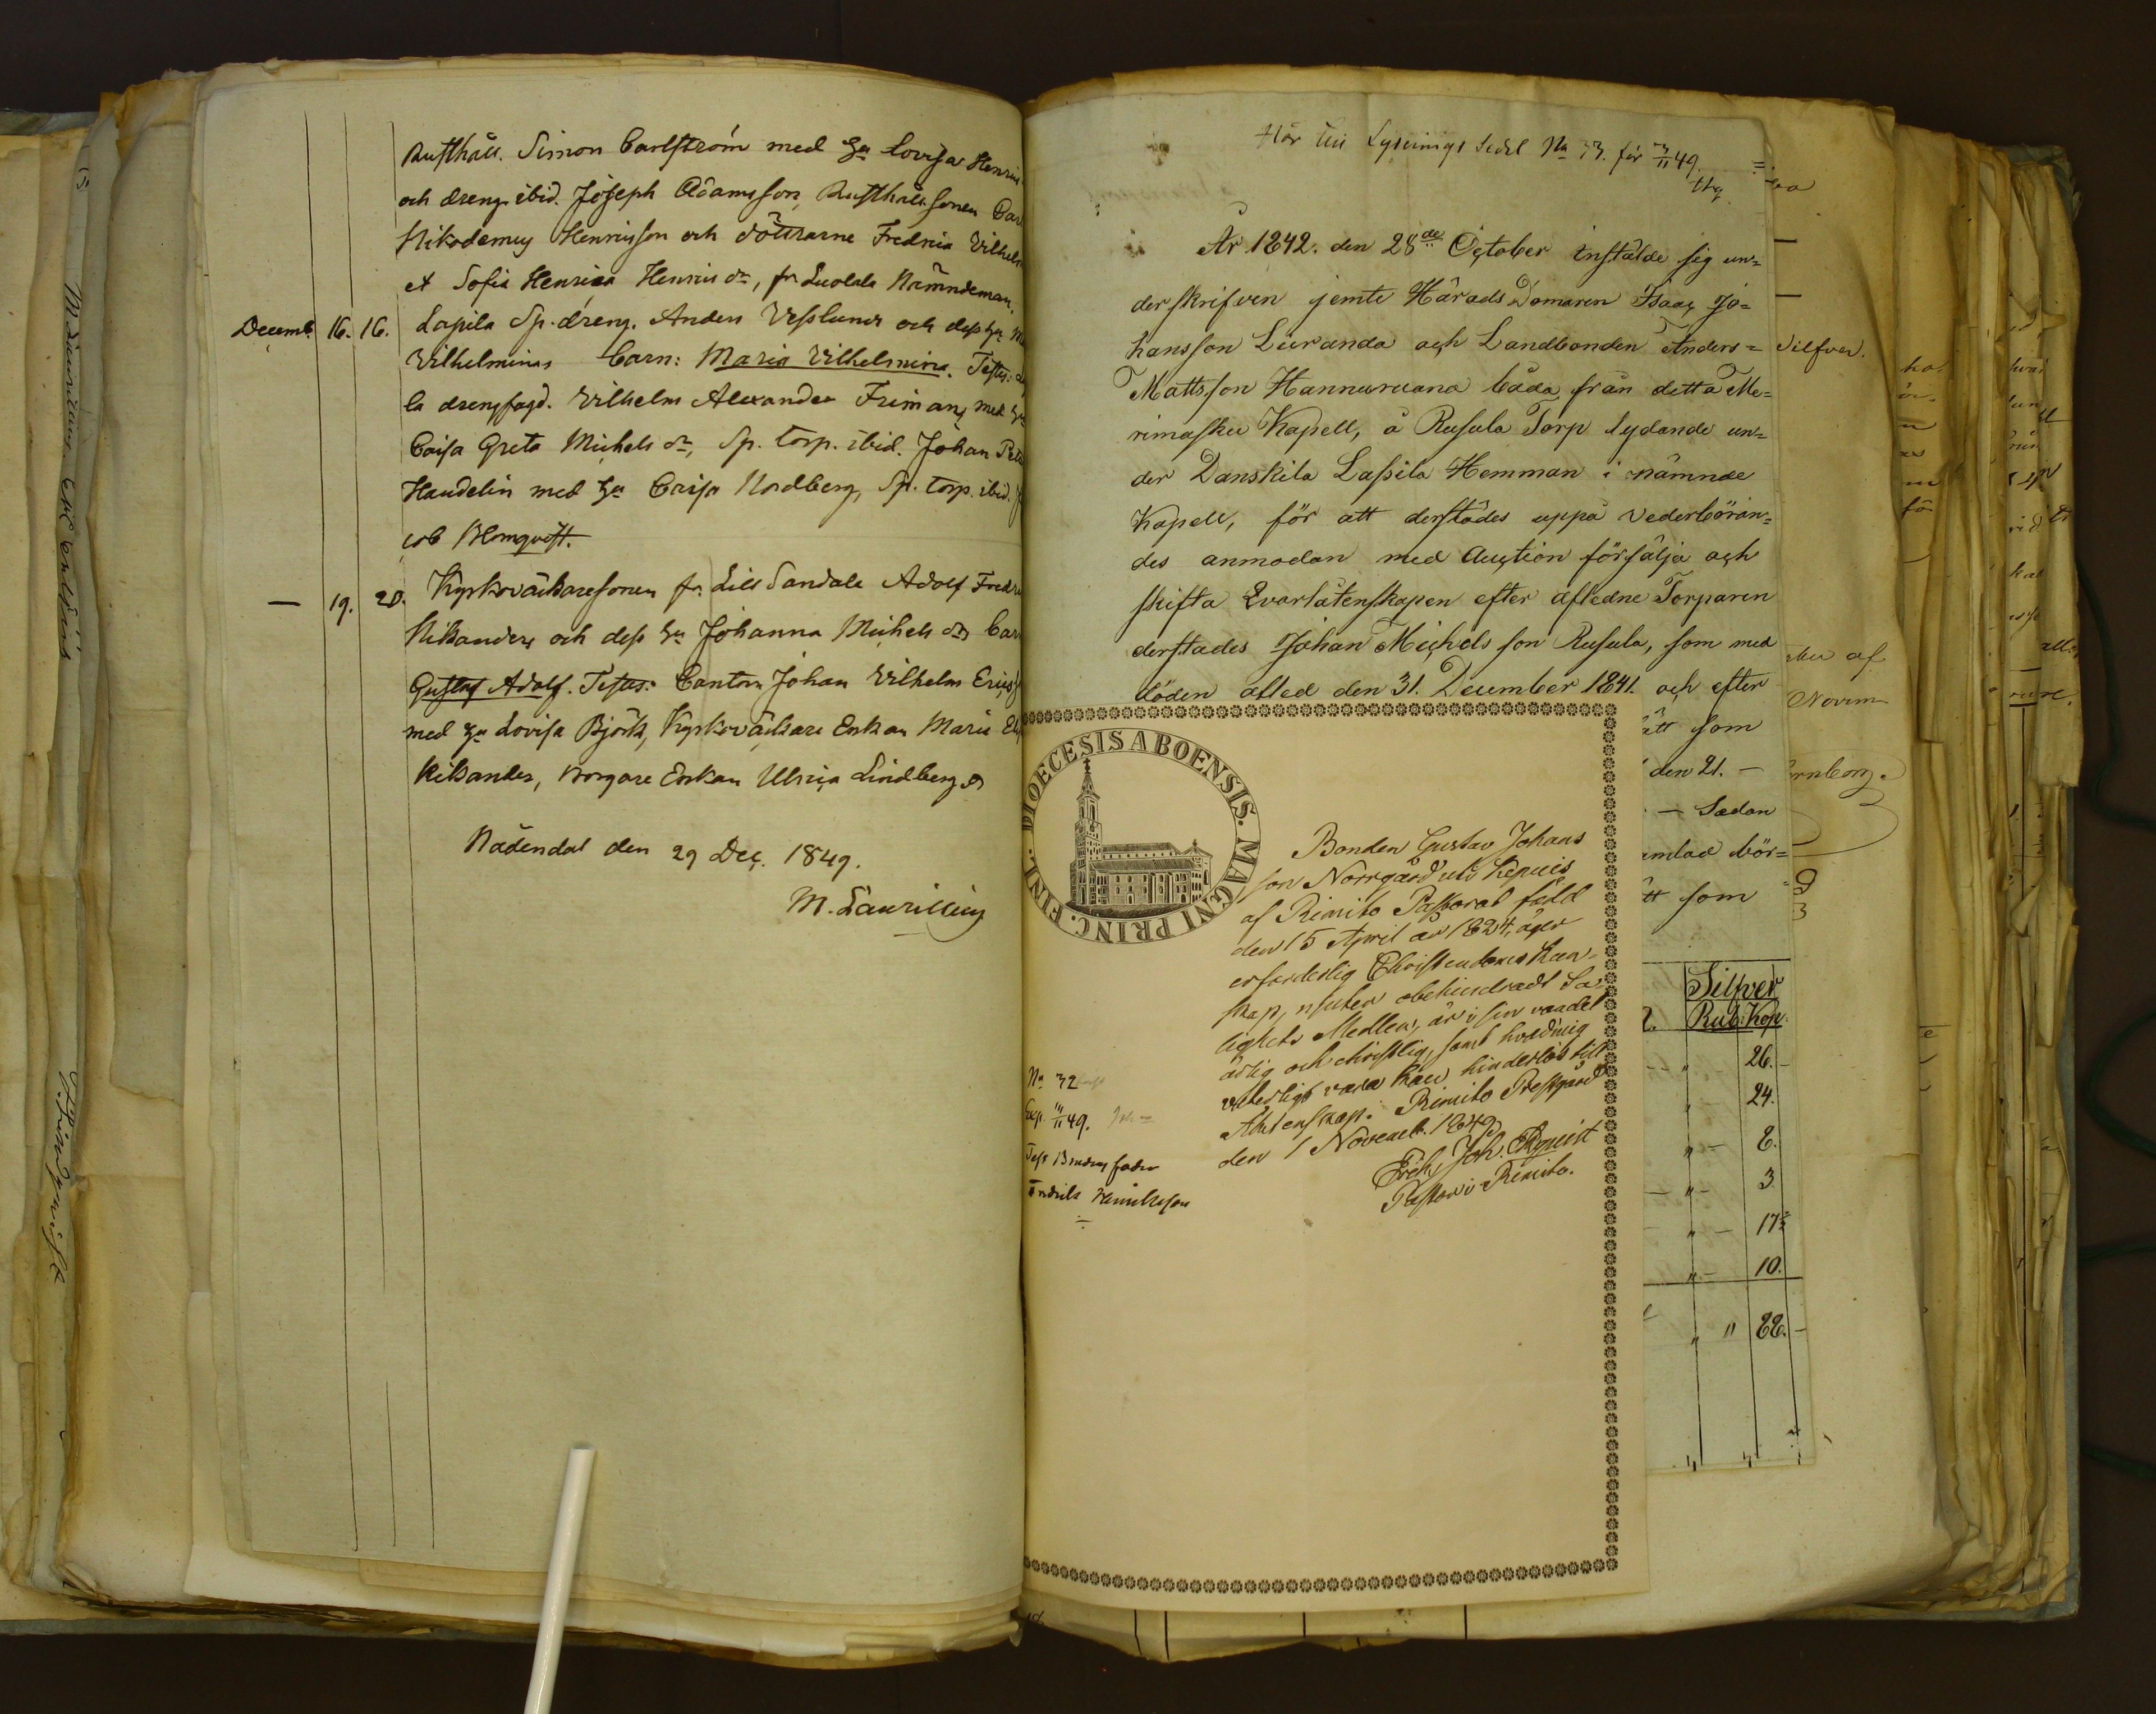 Rusthåll. Simon Carlström med Hu Lovisa Henrics
och dreng. ibid. Joseph Adamsson, Rusthålls sonen Carl
Nikodemus Henricsson och döttrarne Fredrica Vilhelm
et Sofia Henrica Henrics dr, fr Luolala Nämndeman.
Decemb. 16. 16. Lapila Sp. dreng. Anders Vesslunds och dess Hu
Vilhelminas Barn: Maria Vilhelmina. Testes:
la drengfogd. Vilhelm Alexander Friman, med Hu
Caisa Greta Michels dr, Sp. torp. ibid. Johan Peter
Haudelin med Hu Caisa Nordberg, Sp. torp. ibid.
cob Blomqvist.
— 19. 20. Kyrkoväktaresonen fr. Lill Sandala Adolf Fredric
Nikanders och dess Hu Johanna Michels dr Barn
Gustaf Adolf. Testes: Cantorn Johan Vilhelm Erics
med Hu Lovisa Björk, Kyrkoväktare Enkan Maria
Nikander, Borgare Enkan Ulrica Lindberg
Nådendal den 29 Dec. 1849.
M. Laurillius
Hör till Lysnings Sedel No 33. för 49.
År 1842. den 28de October instälde sig un=
derskrifven jemte Härads Domaren Isaac Jo=
hansson Liuranda och Landbonden Anders=
Mattsson Hannuruana båda från detta Me=
rimasku Kapell, å Rusula Torp lydande un=
der Danskila Lassila Hemman i nämnde
Kapell, för att derstädes uppå vederbörän=
des anmodan med Auction försälja och
skifta Qvarlåtenskapen efter afledne Torparen
derstädes Johan Michelsson Rusula, som med
döden afled den 31. December 1841. och efter
som
den 21. —
— Sedan
som
DIOECESIS ABOENSIS. MAGNI PRINC. FINL.
Bonden Gustav Johans
son Norrgård uti Kepuis
af Rimito Pastorat född
den 15 April år 1824, äger
erforderlig Christendoms kun=
skap, njuter obehindradt Sa=
lighets Medlen, är i sin vandel
ärlig och christlig, samt hvad mig
veterligt vara kan hinderlös till
Äktenskap. Rimito Prestgård
den 1 Novemb. 1849.
Erik Joh. Elgquist
Pastor i Rimito.
No 32
Exp. 49.
Test Brudens fader
Henriksson
Silfver
Rub. Kop.
26.
24.
8.
3
17
10.
88.
Silfver.
af
Novem